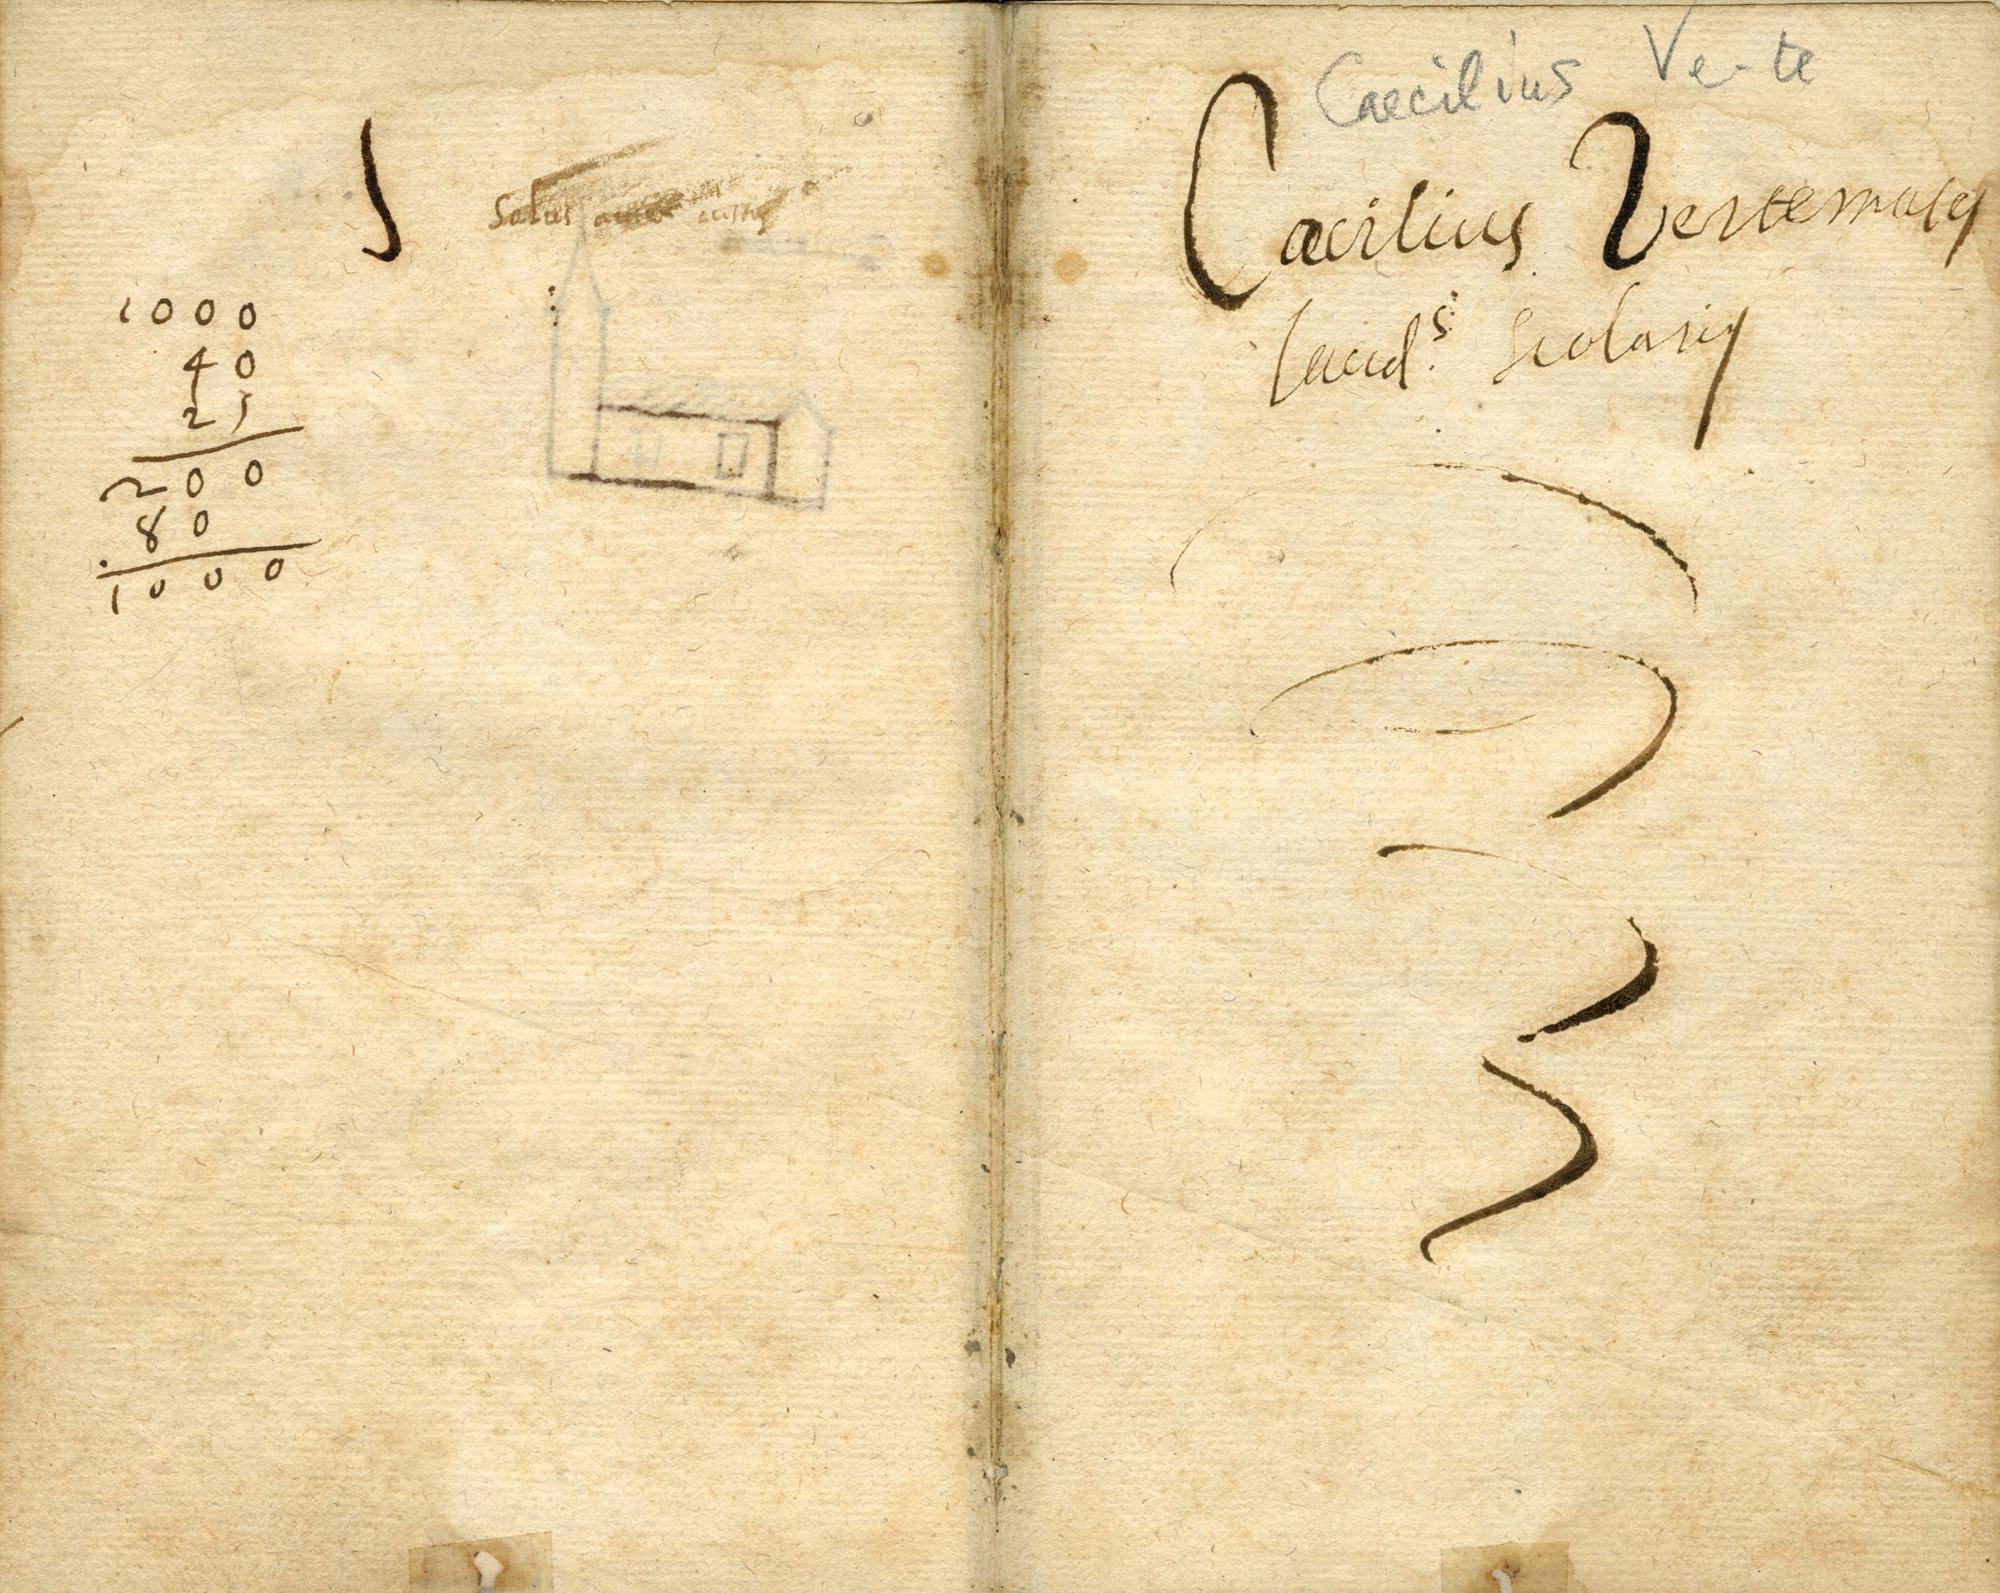 1000
40
25
200
80
1000
Salus
Caecilius Ve-te
Caecilius Vertemates
laud.s scolaris